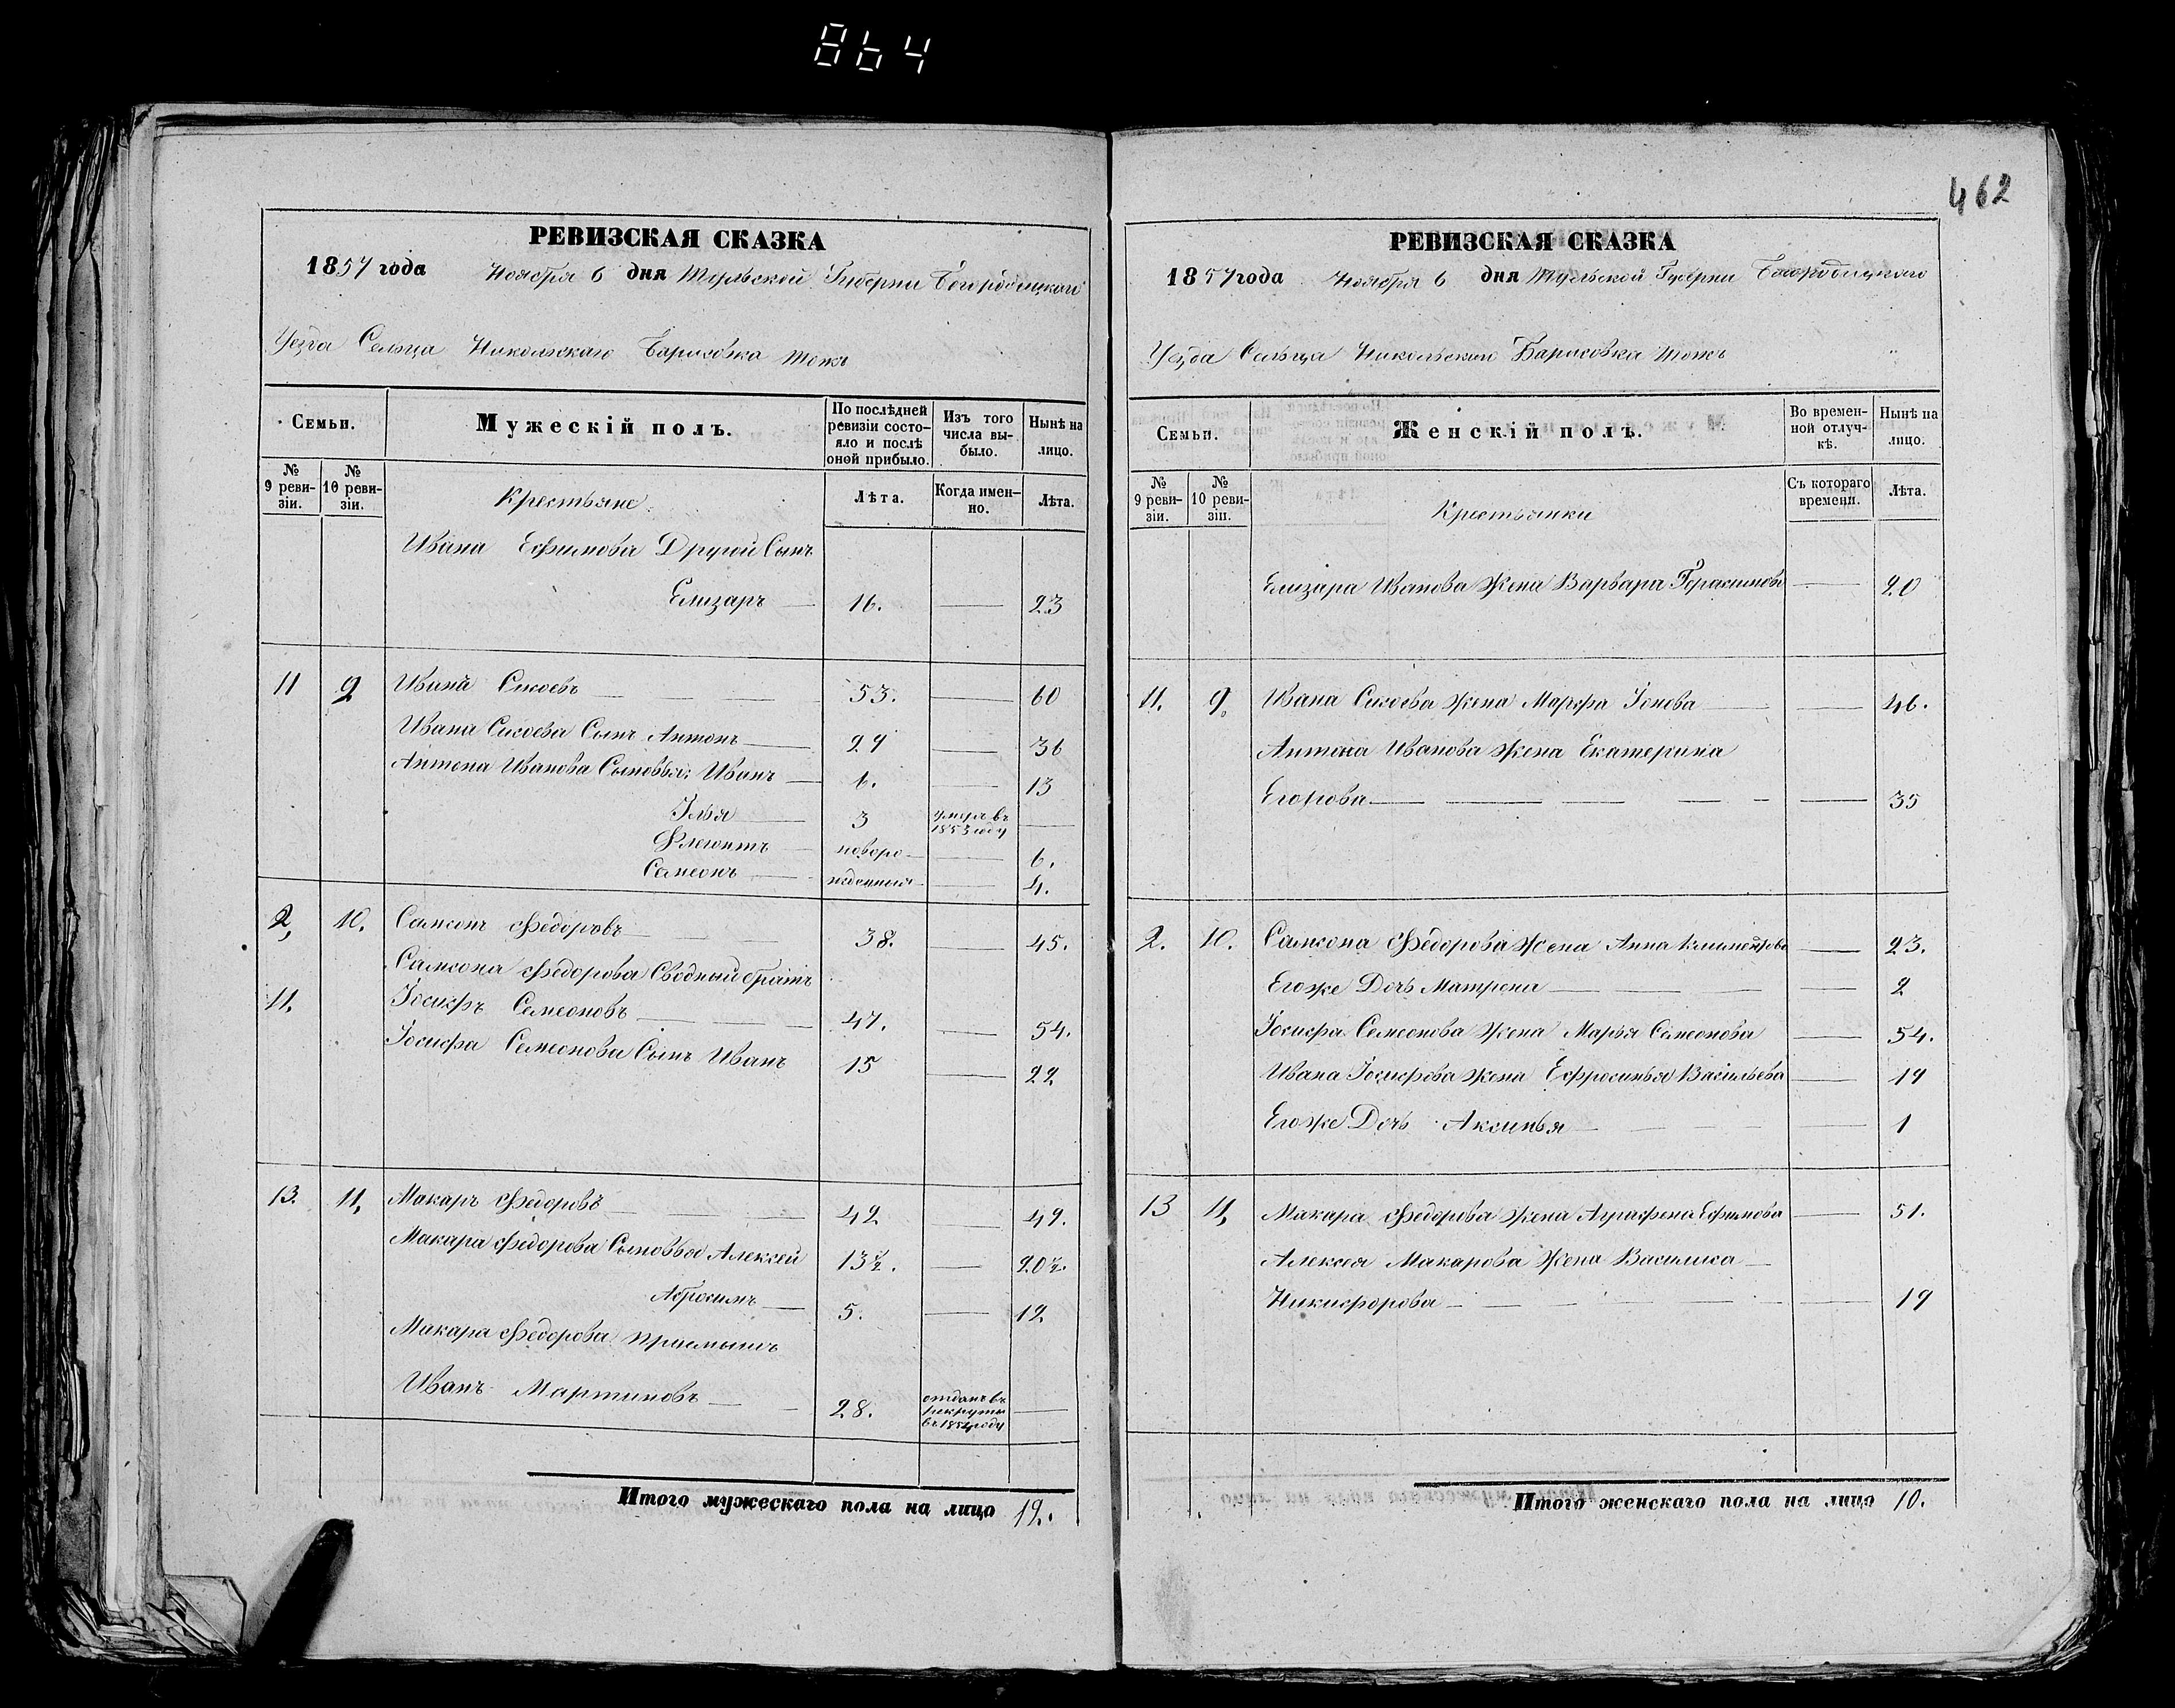 864
462
РЕВИЗСКАЯ СКАЗКА
1857 года Ноября 6 дня Тульской Губерни Богородицкаго
Уезда Сельца Никольскаго Барисовка тожъ
Семьи.
Мужескій полъ.
По послѣдней ревизіи состояло и послѣ оной прибыло.
Изъ того числа выбыло.
Нынѣ на лицо.
№ 9 ревизіи.
№ 10 ревизіи.
Крестьяне
Лѣта.
Когда именно.
Лѣта.
Ивана Ефимова Другой Сынъ
Елизаръ 16. 23
11 9 Иванъ Сисоевъ 53. 60
Ивана Сисоева Сынъ Антонъ 29 36
Антона Ивановa Сыновья: Иванъ 6. 13
Илья 3 умеръ въ 1853 году
новоро- 6.
Семеонъ жденныя 4.
2, 10. Самсонъ Федоровъ 38. 45.
Самсона Федорова Сводный братъ
11. Іосифъ Семеоновъ 47. 54.
Іосифа Семеонова Сынъ Иванъ 15 22
13. 11, Макаръ Федоровъ 42 49.
Макара Федорова Сыновья Алексей 13½. 20½.
Абросимъ 5. 12
Макара Федорова приемышъ
Иванъ Мартиновъ 28. отданъ въ рекруты въ 1854 году
Итого мужескаго пола на лицо 12.
РЕВИЗСКАЯ СКАЗКА
1857 года Ноября 6 дня Тульской Губерни Богородицкаго
Уезда Сельца Никольскаго Барисовка тожъ
Семьи.
Женскій полъ.
Во временной отлучкѣ.
Нынѣ на лицо.
№ 9 ревизіи.
№ 10 ревизіи.
Крестьянки
Съ котораго времени.
Лѣта.
Елизара Иванова Жена Варвара Герасимова 20
11. 9. Ивана Сисоева Жена Марфа Іонова 46.
Антона Иванова Жена Екатерина
Егорова 35
2. 10. Самсона Федорова Жена Анна 23.
Егоже Дочь Матрена 2
Іосифа Семеонова Жена Марья Семеонова 54.
Ивана Іосифова Жена Ефросинья Васильева 19
Егоже Дочь Аксинья 1
13 11, Макара Федорова Жена Аграфена Ефимова 51.
Алексея Макарова Жена Василиса
Никифорова 19
Итого женскаго пола на лицо 10.